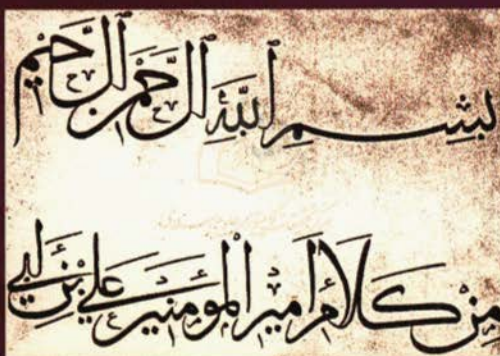 بسم الله الرحمن الرحيم
من كلام امير المؤمنين علي بن ابي